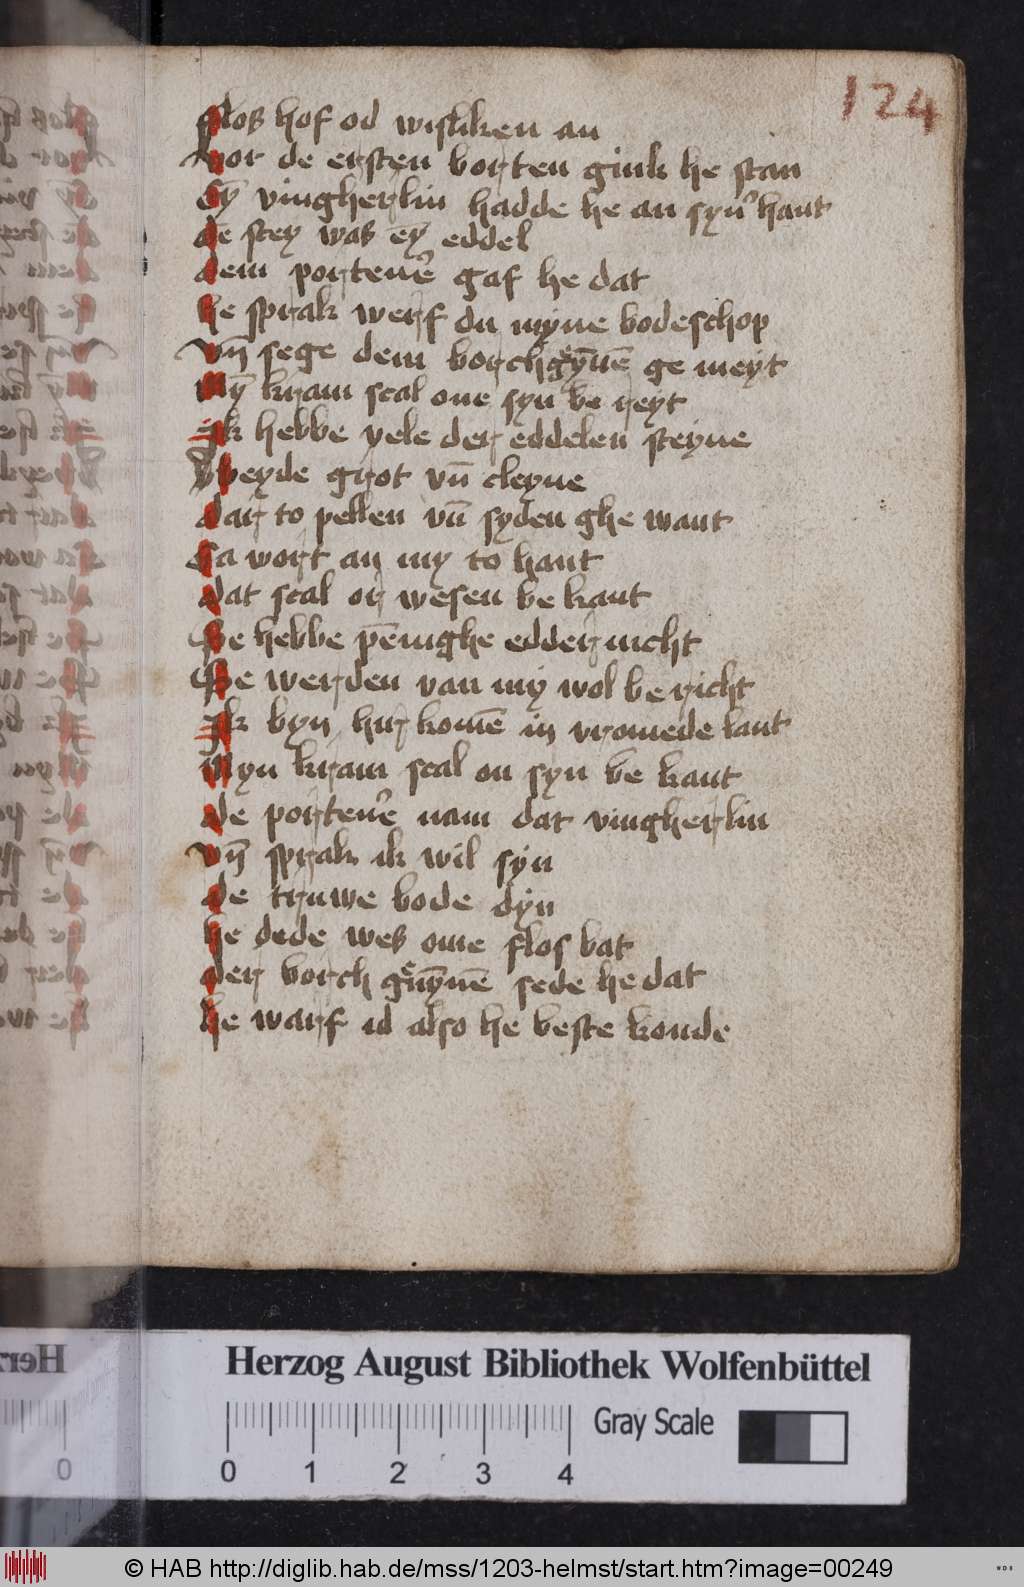 124
flos hof od wisliken an
vor de ersten borten gink he stan
Eyn̄ vingherlin hadde he an syn᷑ hant
de stey was ey̅ eddel
dem porten᷑e gaf he dat
he sprak werf du myne bodeschop
vn̄ sege dem borchgᵉuynē ge meyt
My̅ kram scal one syn be reyt
Ik hebbe vele der eddelen steyne
beyde grot vn̄ cleyne
dar to pellen vn̄ syden ghe want
Ga wort an my to hant
dat scal or wesen be kant
Se hebbe pēnighe edder nicht
Se werden van my wol be richt
Ik byn hir komē in vromede lant
Myn kram scal on syn be kant
de porten᷑e nam dat vingherlin
vn̄ sprak ik wil syn
de truwe bode dyn
he dede wes ome flos bat
der borch gᵉuynē sede he dat
he warf id also he beste konde
Herzog August Bibliothek Wolfenbüttel
Gray Scale
0 1 2 3 4
© HAB http://diglib.hab.de/mss/1203-helmst/start.htm?image=00249